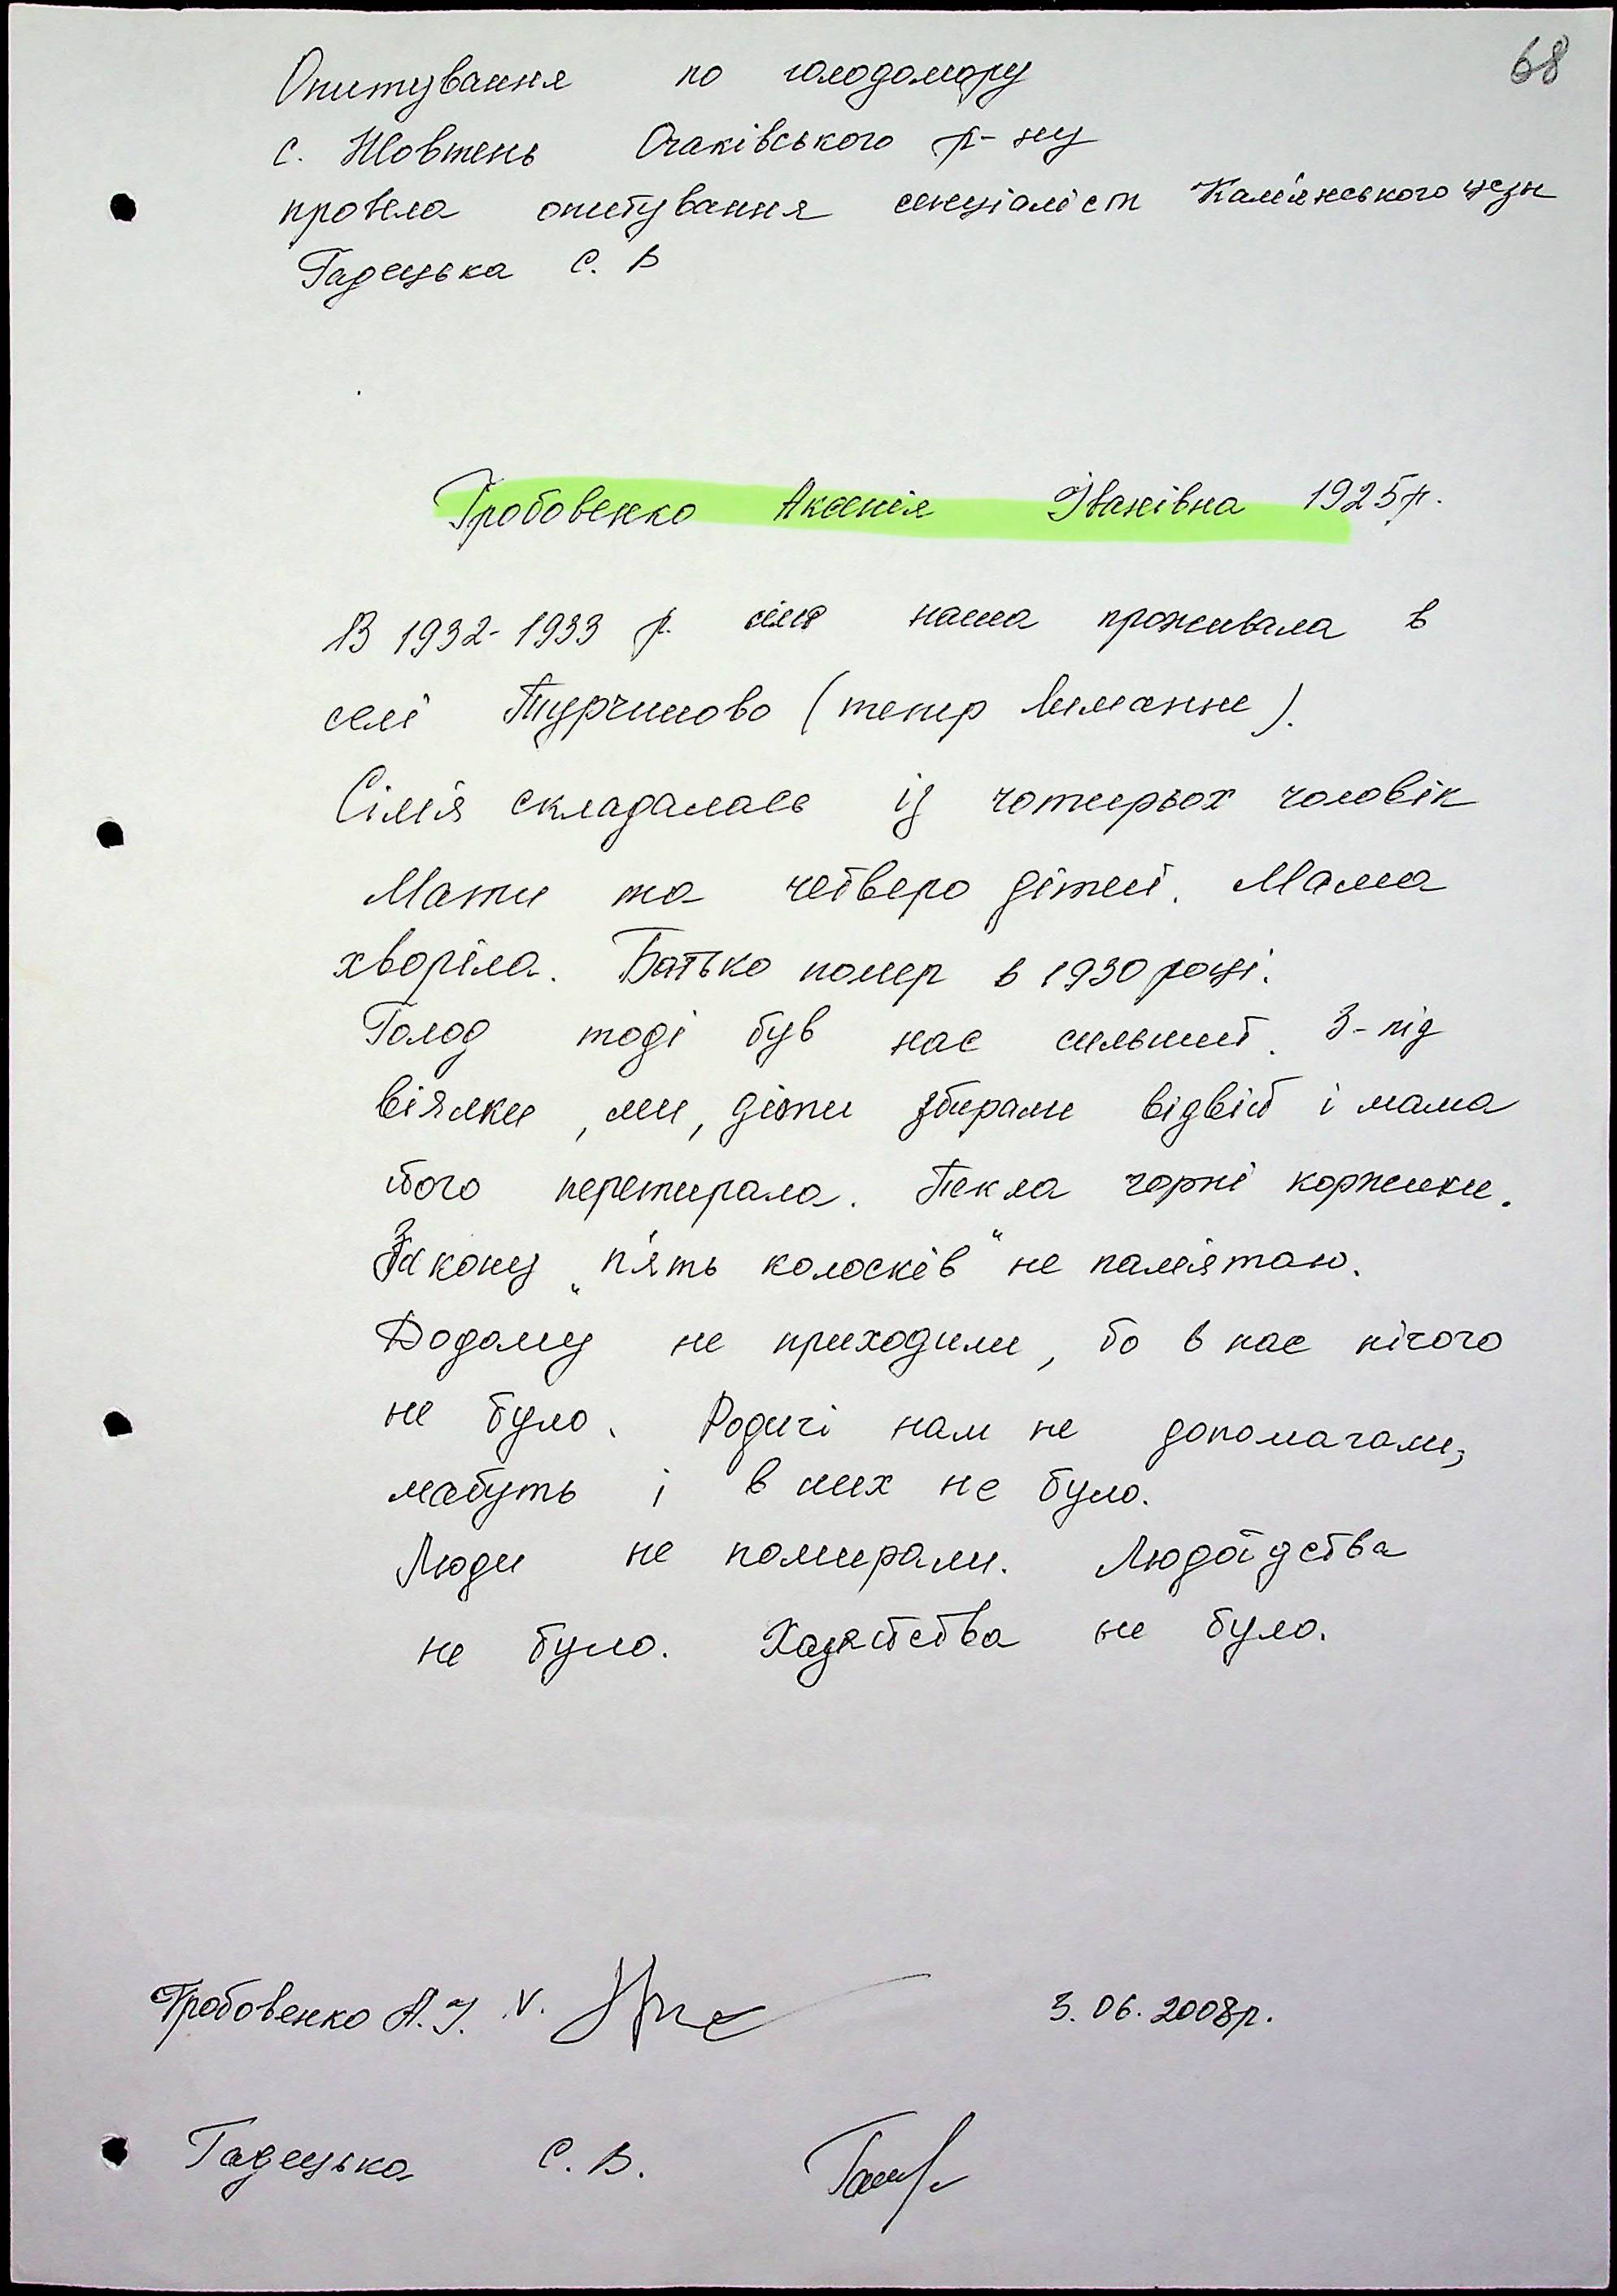 68
Опитування по голодомору
с. Жовтень Очаківського р-ну
провела опитування спеціаліст Кам'янського цезн
Гадецька С. В
Гробовенко Аксенія Іванівна 1925 р.
В 1932-1933 р. сім'я наша проживала в
селі Турчиново (тепер Лиманне).
Сім'я складалась із чотирьох чоловік
Мати та четверо дітей. Мама
хворіла. Батько помер в 1930 році.
Голод тоді був нас сильний. З-під
віялки, ми, діти збирали відвій і мама
його перетирала. Пекла чорні коржики.
Закону „п'ять колосків" не пам'ятаю.
Додому не приходили, бо в нас нічого
не було. Родичі нам не допомагали,
мабуть і в них не було.
Люди не помирали. Людоїдства
не було. Хазяйства не було.
Гробовенко А. І. v. 3. 06. 2008р.
Гадецька С. В.